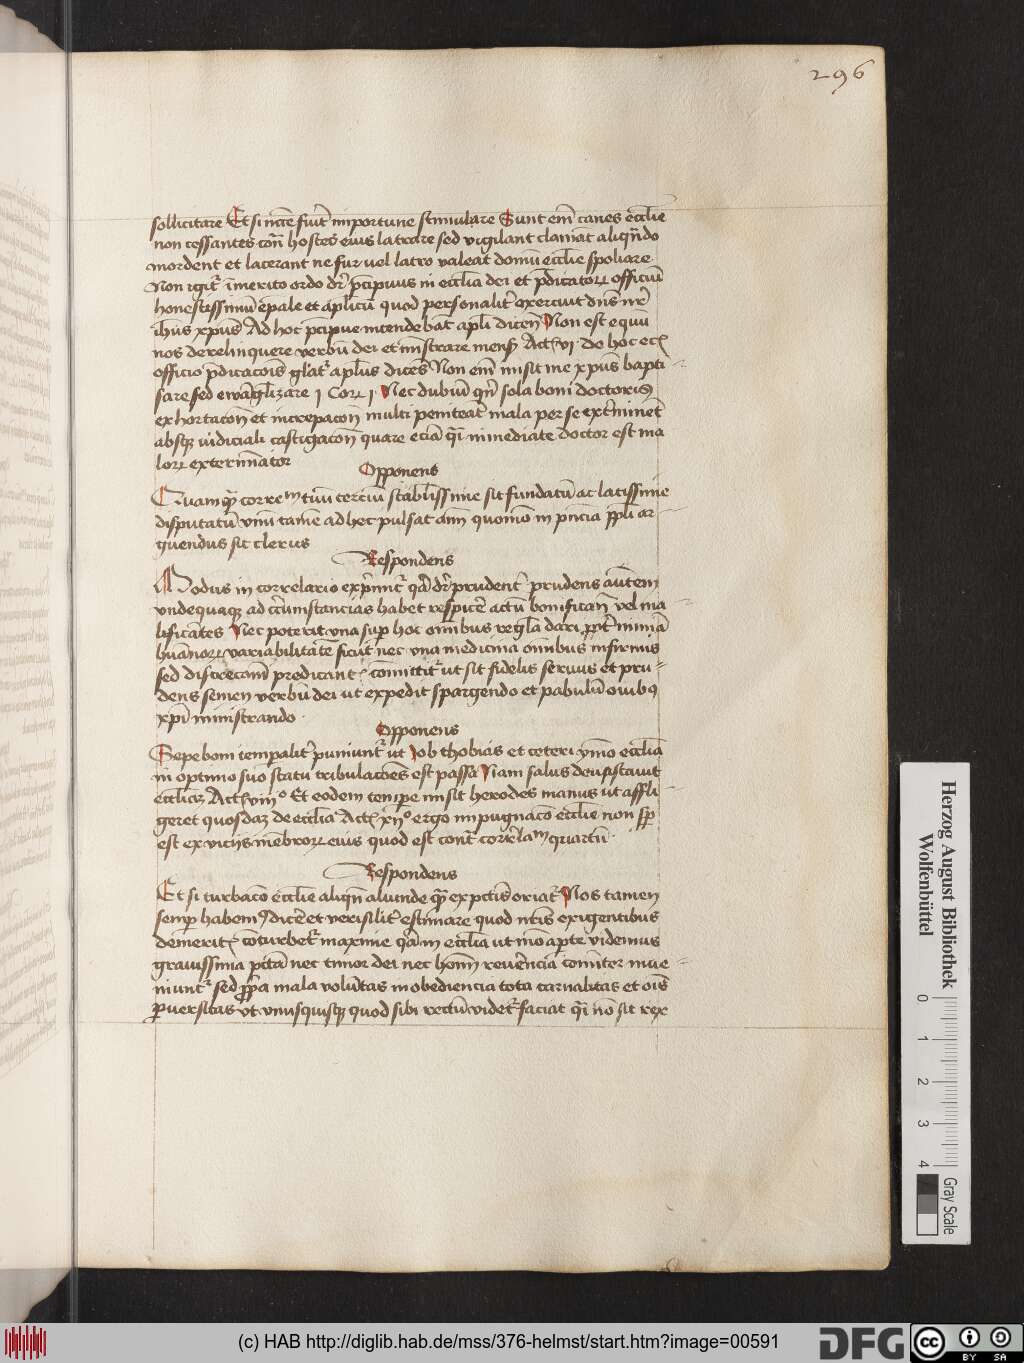 296
sollicitare Et si nccͤe fuit̃ importune stimulare Sunt em̃ canes eccl̃ie
non cessantes contͣ hostes eius latrare sed vigilant clamãt aliqñdo
mordent et lacerant ne fur vel latro valeat domũ eccl̃ie spoliare
Non igit᷑ īmerito ordo dr̃ p̃cipuus in eccl̃ia dei et p̃dicatoꝝ officiũ
honestissimũ ep̃ale et apl̃icũ quod personalit̃ exercuit dñs nr̃
ih̃us xp̃us Ad hoc p̃cipue intendebãt apl̃i dicent̃ Non est equũ
nos derelinquere verbũ dei et mĩstrare mens̃ Act̃ vi De hoc eĉ
officio p̃dicacõis gl̃at᷑ apl̃us dicẽs Non em̃ misit me xp̃us bapti
sare sed ewãgl̃izare i Coꝝ i Nec dubiũ qñ sola boni doctoris
exhortacõe et increpacõe multi peniteãt mala per se ext̃minẽt
absqꝫ iudiciali castigacõe quare eciã q̃ĩ inmediate doctor est ma
loꝝ exterminator
Opponens
Quamqͣ̃ correm tuũ terciũ stabilissime sit fundatũ ac latissime
disputatũ vnũ tamẽ adhec pulsat aĩm quomõ in pñcia pp̃li ar
guendus sit clerus
Respondens
Modus in correlario exp̃mit᷑ qͣ̃ dr̃ prudent̃ prudens autem
vndequaqꝫ ad circũstancias habet respicẽ actũ bonificant̃ vel ma
lificãtes Nec poterit vna sup̃ hoc omibus regl̃a dari ꝓpt̃ nimiã
humanoꝝ variabilitatẽ sicut nec vna medicina omibus infirmis
sed discrecõni predicant᷑ cõmittit᷑ ut sit fidelis seruus et pru
dens semen verbũ dei ut expedit spargendo et pabulũ ouibus
xp̃i ministrando
Opponens
Sepe boni temp̃alit̃ puniunt᷑ ut Iob thobias et ceteri ymo eccl̃ia
in optimo suo statu tribulacões est passa Nam salus deuastauit
eccl̃ias Act̃ viiiº Et eodem temp̃e misit herodes manus ut affli
geret quosdaʒ de eccl̃ia Act̃ xiiº ergo impugnacõ eccl̃ie non sp̃
est ex viciis mẽbroꝝ eius quod est contͣ correl̃am quartũ
Respondens
Et si turbacõ eccl̃ie aliqñ aliunde qͣ̃ ex pctĩs oriat᷑ Nos tamen
semp̃ habemꝰ dicẽ et verisilit̃ estimare quod nr̃is exigentibus
demerit̃ cõturbet᷑ maxime qͣ̃ in eccl̃ia ut nũc ap̃te videmus
grauissima pctã nec timor dei nec hoĩm reuerẽcia comit̃er inue
niunt᷑ sed pp̃a mala volũtas inobediencia tota carnalitas et oĩs
ꝑuersitas vt vnusquisqꝫ quod sibi rectũ videt᷑ faciat q̃ĩ nõ sit rex
Herzog August Bibliothek
Wolfenbüttel
0 1 2 3 4
Gray Scale
(c) HAB http://diglib.hab.de/mss/376-helmst/start.htm?image=00591
DFG
cc BY SA